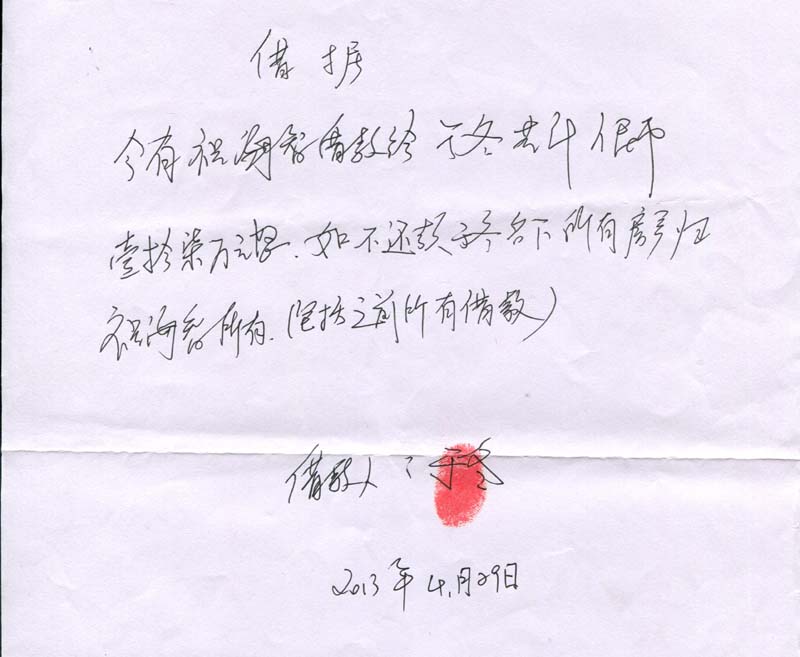 借据
今有祝海智借款给于冬共计人民币
壹拾柒万元整.如不还款于冬名下所有房子归
祝海智所有.(包括之前所有借款)
借款人:于冬
2013年4.月29日